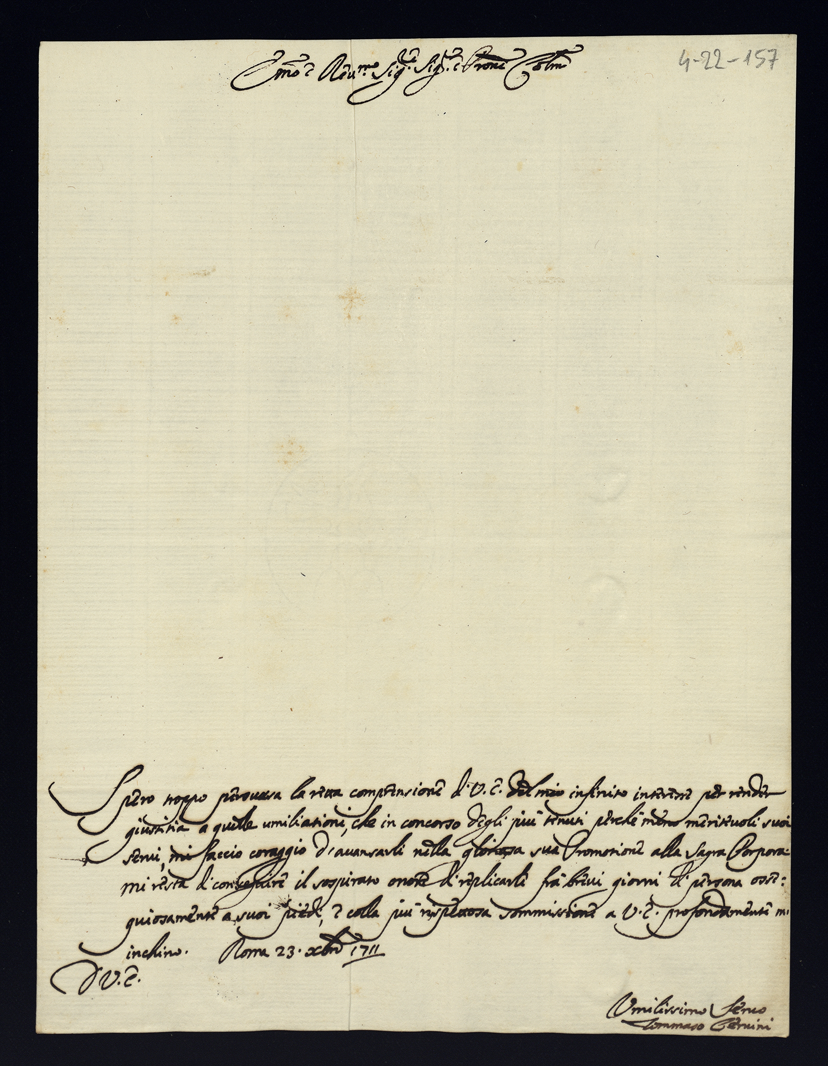 Emo e Reumo Sigr. Sigr. e Prone Colmo
4-22-157
Spero troppo persuasa la retta comprensione di V. E. del mio infinito interesse per render
giustitia a quelle umiliationi, che in concorso degli più tenuti perche meno meritevoli suoi
servi, mi faccio coraggio d'avansarli nella gloriosa sua Promotione alla Sagra Porpora.
mi resta di conseguire il sospirato onore di replicarli frà brevi giorni di persona osse:
quiosamente a suoi piedi, e colla più rispettosa sommissione a V. E. profondamente m'
inchino. Roma 23. Xbre 1711
D V. E.
Umilissimo Servo
Tommaso Bernini